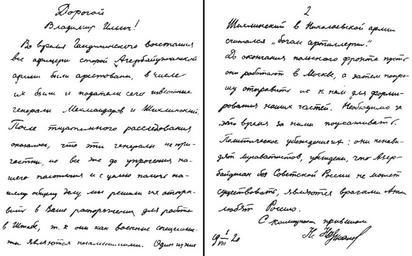 Дорогой
Владимир Ильич!
Во время Ганджинского восстания
все офицеры старой Азербайджанской
армии были арестованы, в числе
их были и податели сего известные
генералы Мехмандаров и Шихлинский
После тщательного расследования
оказалось, что эти генералы не при-
частны, но все же до упрочения на-
шего положения и с целью пользы на-
шему общему делу мы решили их отпра-
вить в Ваше распоряжение для работ
в Штабе, т. к. они как военные специали-
сты являются незаменимыми. Один из них
2
Шихлинский в Николаевской армии
считался "богом артиллерии".
До окончания польского фронта пусть
они работают в Москве, а затем прошу
отправить их к нам для форми-
рования наших частей. Необходимо за
это время за ними поухаживать.
Политические убеждения: они ненави-
дят мусаватистов, убеждены, что Азер-
байджан без Советской России не может
существовать, являются врагами
любят Россию.
С коммунист. приветом
Н. Нариманов
1/VIII 20